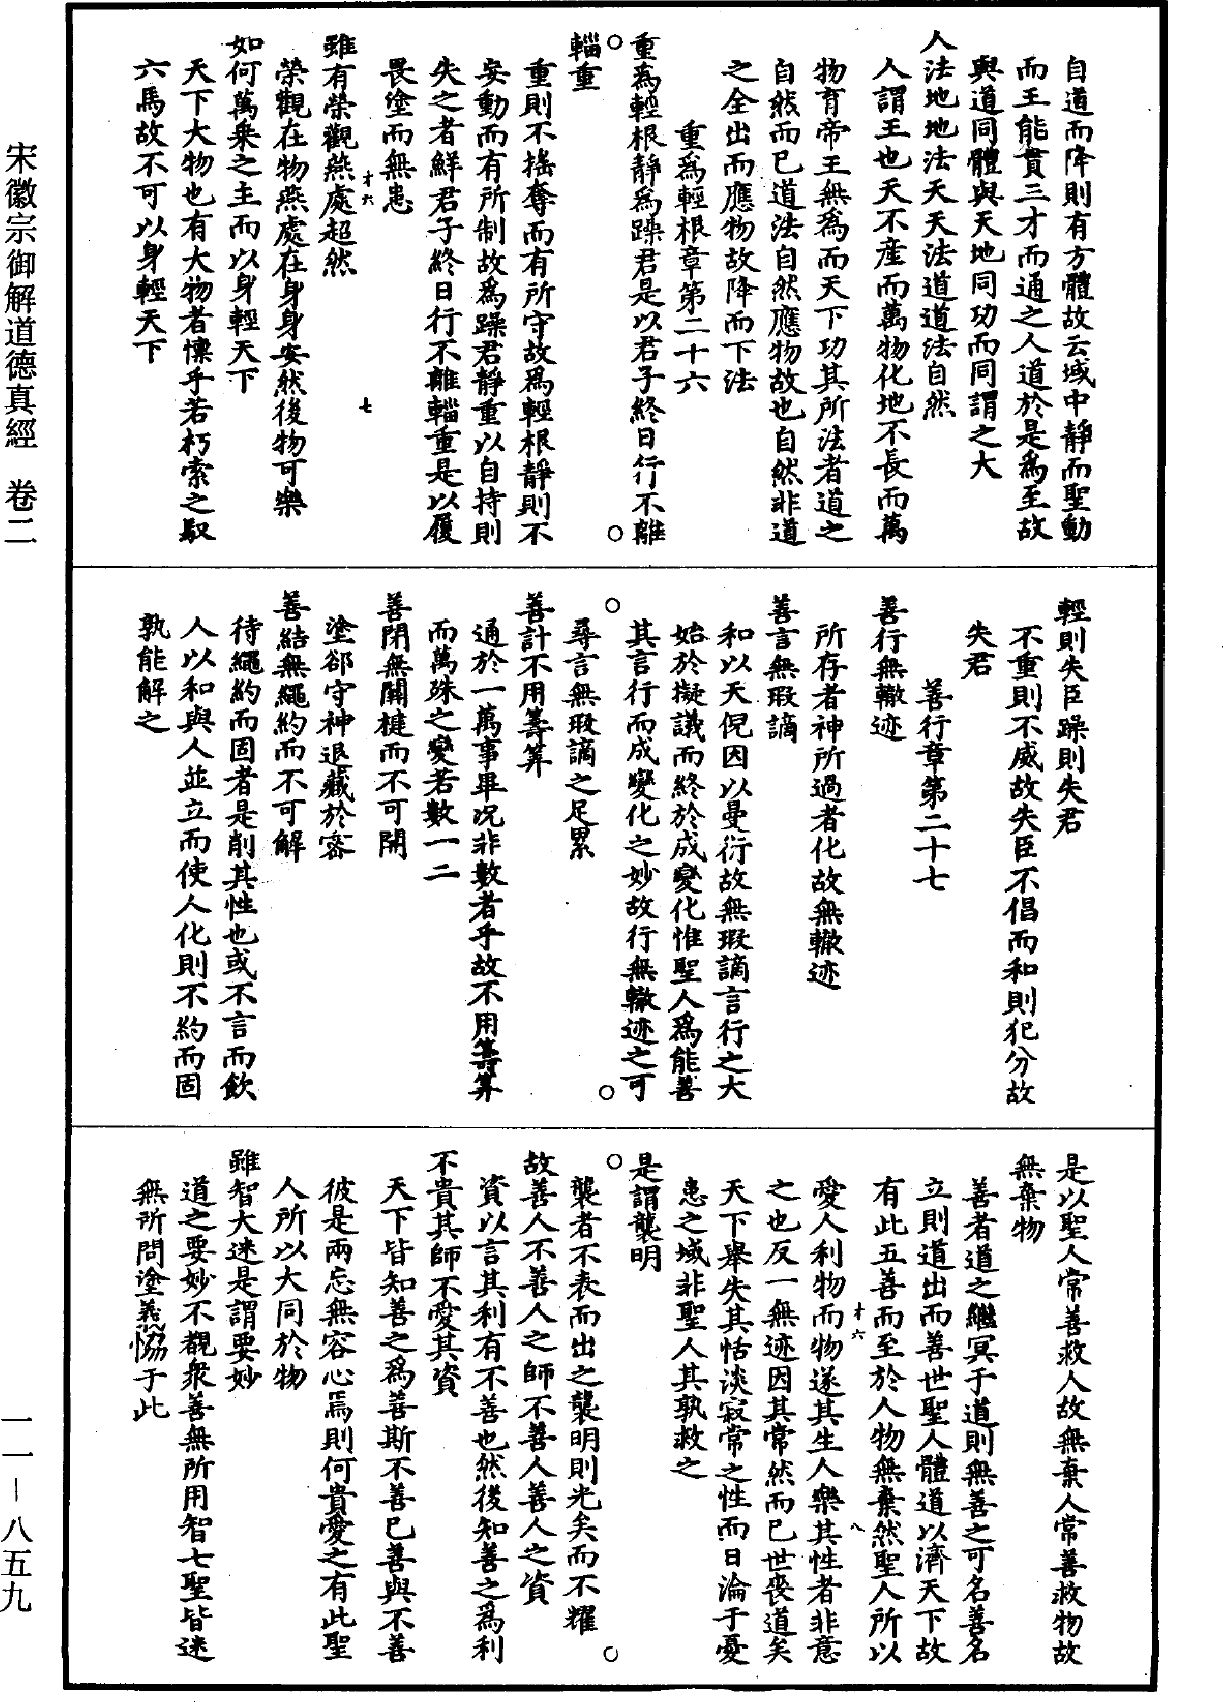 自道而降則有方體故云域中靜而聖動
而王能貫三才而通之人道於是爲至故
與道同體與天地同功而同謂之大
人法地地法天天法道道法自然
人謂王也天不產而萬物化地不長而萬
物育帝王無爲而天下功其所法者道之
自然而已道法自然應物故也自然非道
之全出而應物故降而下法
重爲輕根章第二十六
重爲輕根靜爲躁君是以君子終日行不離
輜重
重則不搖奪而有所守故爲輕根靜則不
妄動而有所制故爲躁君靜重以自持則
失之者鮮君子終日行不離輜重是以履
畏塗而無患
雖有榮觀燕處超然
才六
七
榮觀在物燕處在身身安然後物可樂
如何萬乘之主而以身輕天下
天下大物也有大物者懍乎若朽索之馭
六馬故不可以身輕天下
輕則失臣躁則失君
不重則不威故失臣不倡而和則犯分故
失君
善行章第二十七
善行無轍迹
所存者神所過者化故無轍迹
善言無瑕謫
和以天倪因以曼衍故無瑕謫言行之大
始於擬議而終於成變化惟聖人爲能善
其言行而成變化之妙故行無轍迹之可
尋言無瑕謫之足累
善計不用籌筭
通於一萬事畢况非數者乎故不用籌筭
而萬殊之變若數一二
善閉無關楗而不可開
塗郤守神退藏於密
善結無繩約而不可解
待繩約而固者是削其性也或不言而飲
人以和與人並立而使人化則不約而固
孰能解之
是以聖人常善救人故無棄人常善救物故
無棄物
善者道之繼冥于道則無善之可名善名
立則道出而善世聖人體道以濟天下故
有此五善而至於人物無棄然聖人所以
才六
八
愛人利物而物遂其生人樂其性者非意
之也反一無迹因其常然而已世喪道矣
天下舉失其恬淡寂常之性而日淪于憂
患之域非聖人其孰救之
是謂襲明
襲者不表而出之襲明則光矣而不耀
故善人不善人之師不善人善人之資
資以言其利有不善也然後知善之爲利
不貴其師不愛其資
天下皆知善之爲善斯不善已善與不善
彼是兩忘無容心焉則何貴愛之有此聖
人所以大同於物
雖智大迷是謂要妙
道之要妙不覩衆善無所用智七聖皆迷
無所問塗義協于此
宋徽宗御解道德真經 卷二
一一－八五九